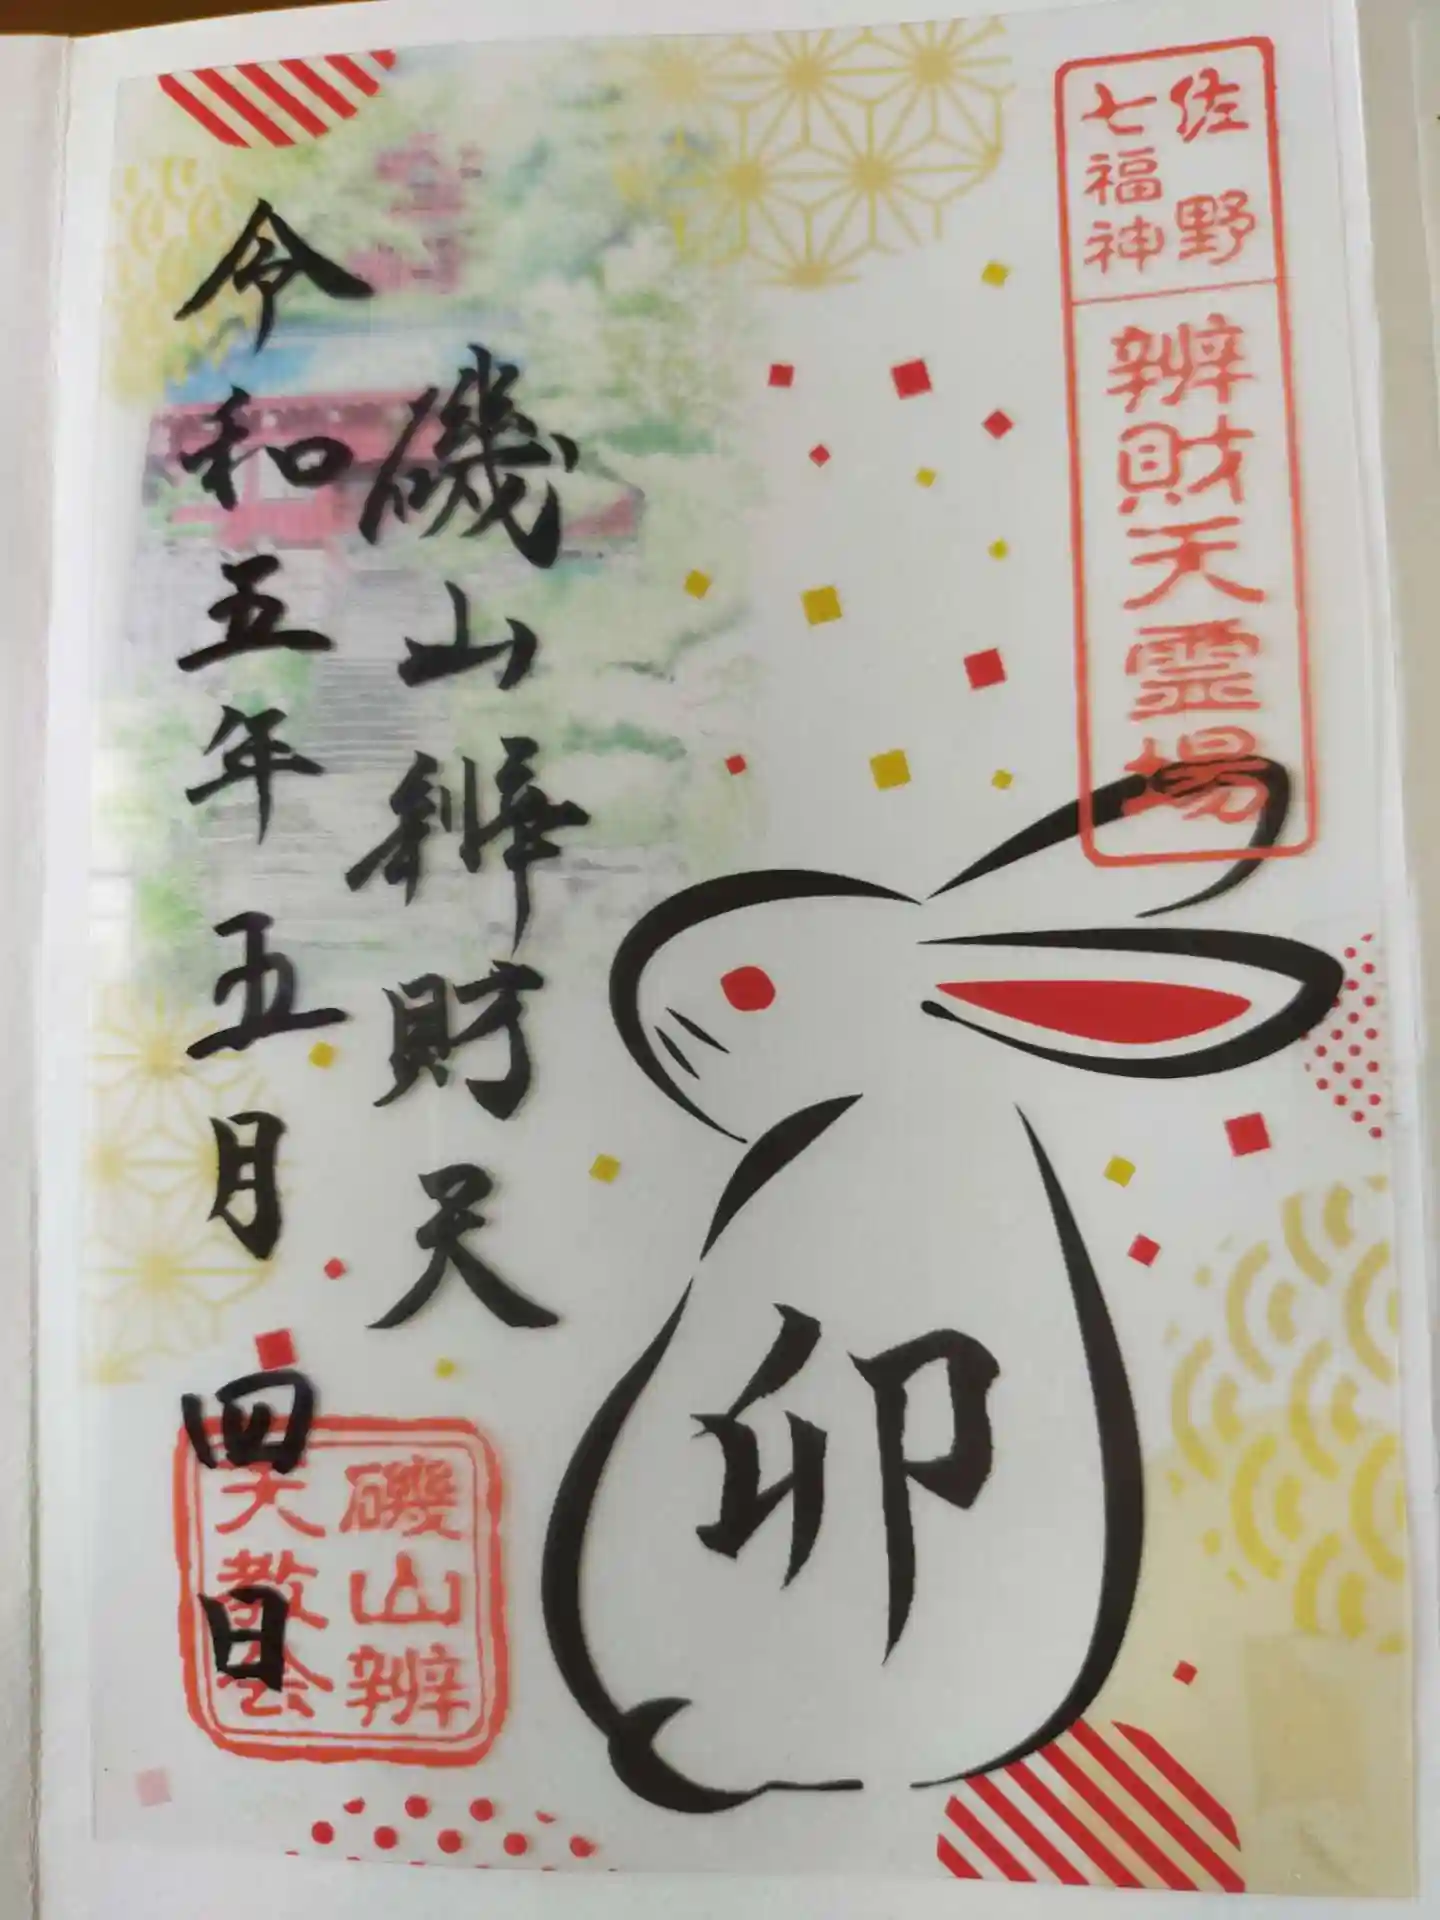 佐野
七福神
辨財天霊場
卯
磯山辨財天
令和五年五月四日
磯山辨
天教会